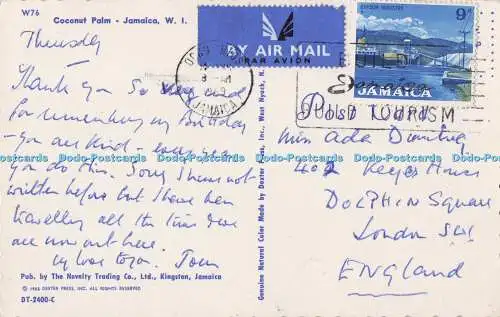 W76 Coconut Palm - Jamaica, W. I.
Thursday
Thank you so very
for remembering my Birthday
- you are kind - every year
you do this. Sorry I have not
written before but I have been
travelling all the time. We
are now out here.
my love to you. Tom
Pub. by The Novelty Trading Co., Ltd., Kingston, Jamaica
DEXTER PRESS, INC. ALL RIGHTS RESERVED
DT-2400-C
Genuine Natural Color Made by Dexter Press, Inc., West Nyack, N.
BY AIR MAIL
PAR AVION
JAMAICA
9d
JAMAICA
BUILD TOURISM
Post Card
Miss Ada
402 Keyes House
DOLPHIN Square
London SW1
ENGLAND
Dodo-Postcards Dodo-Postcards Dodo-Postcards Dodo-Postcards